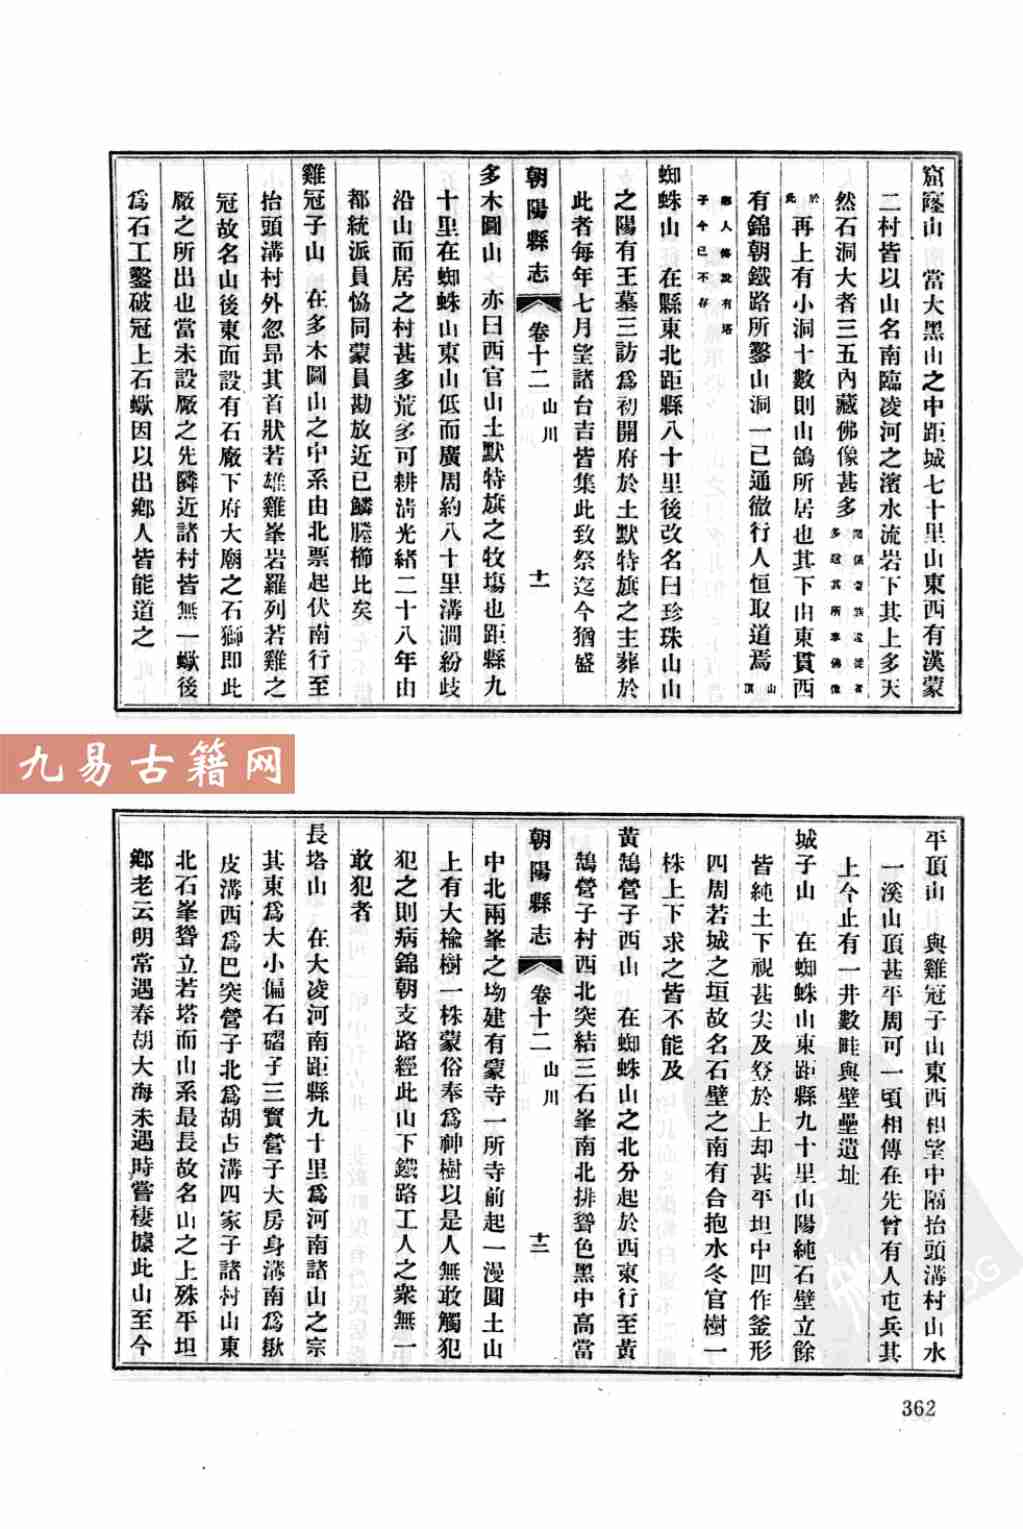 窟窿山　當大黑山之中距城七十里山東西有漢蒙
二村皆以山名南臨凌河之濱水流岩下其上多天
然石洞大者三五內藏佛像甚多
於此再上有小洞十數則山鴿所居也其下由東貫西
有錦朝鐵路所鑿山洞一已通徹行人恒取道焉山頂
鄉人傳說有塔
子今已不存
蜘蛛山　在縣東北距縣八十里後改名曰珍珠山山
之陽有王墓三訪為初開府於土默特旗之主葬於
此者每年七月望諸台吉皆集此致祭迄今猶盛
朝陽縣志　卷十二　山川　十一
多木圖山　亦曰西官山土默特旗之牧場也距縣九
十里在蜘蛛山東山低而廣周約八十里溝澗紛歧
沿山而居之村甚多荒多可耕清光緒二十八年由
都統派員恊同蒙員勘放近已鱗塍櫛比矣
雞冠子山　在多木圖山之中系由北票起伏南行至
抬頭溝村外忽昂其首狀若雄雞峯岩羅列若雞之
冠故名山後東面設有石廠下府大廟之石獅即此
廠之所出也當未設廠之先隣近諸村皆無一蠍後
為石工鑿破冠上石蠍因以出鄉人皆能道之
九易古籍网
平頂山　與雞冠子山東西相望中隔抬頭溝村山水
一溪山頂甚平周可一頃相傳在先曾有人屯兵其
上今止有一井數畦與壁壘遺址
城子山　在蜘蛛山東距縣九十里山陽純石壁立餘
皆純土下視甚尖及登於上却甚平坦中凹作釜形
四周若城之垣故名石壁之南有合抱水冬官樹一
株上下求之皆不能及
黃鵠營子西山　在蜘蛛山之北分起於西東行至黃
鵠營子村西北突結三石峯南北排聳色黑中高當
朝陽縣志　卷十二　山川　十二
中北兩峯之坳建有蒙寺一所寺前起一漫圓土山
上有大楡樹一株蒙俗奉為神樹以是人無敢觸犯
犯之則病錦朝支路經此山下鐵路工人之衆無一
敢犯者
長塔山　在大凌河南距縣九十里為河南諸山之宗
其東為大小偏石磖子三寳營子大房身溝南為鍬
皮溝西爲巴突營子北為胡占溝四家子諸村山東
北石峯聳立若塔而山系最長故名山之上殊平坦
鄉老云明常遇春胡大海未遇時嘗棲據此山至今
362